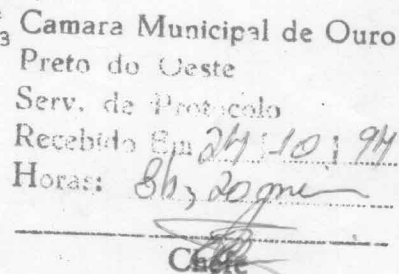 Camara Municipal de Ouro
Preto do Oeste
Serv. de Protocolo
Recebido Em 24 / 10 / 94
Horas: 8h, 20 min
Chefe